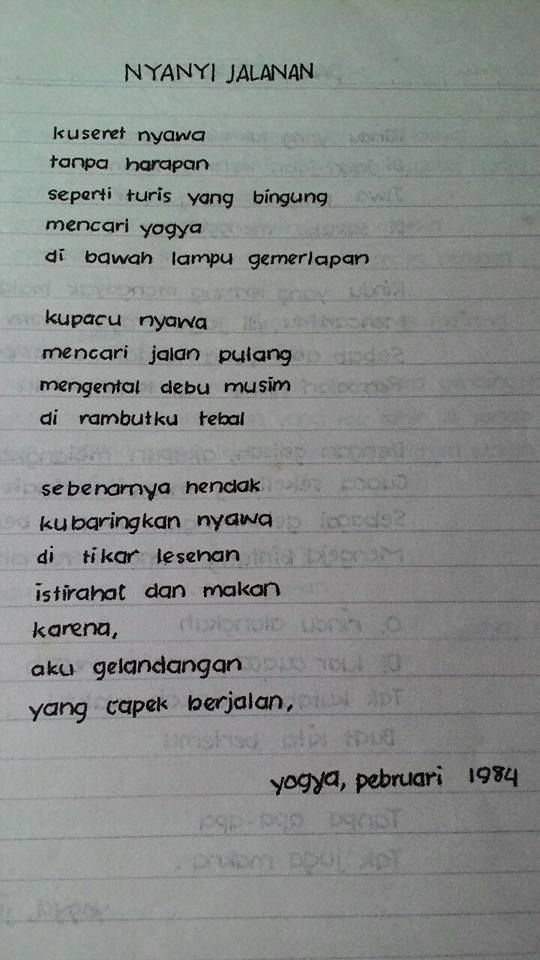 NYANYI JALANAN
kuseret nyawa
tanpa harapan
seperti turis yang bingung
mencari yogya
di bawah lampu gemerlapan
kupacu nyawa
mencari jalan pulang
mengental debu musim
di rambutku tebal
sebenarnya hendak
kubaringkan nyawa
di tikar lesehan
istirahat dan makan
karena,
aku gelandangan
yang capek berjalan,
yogya, pebruari 1984